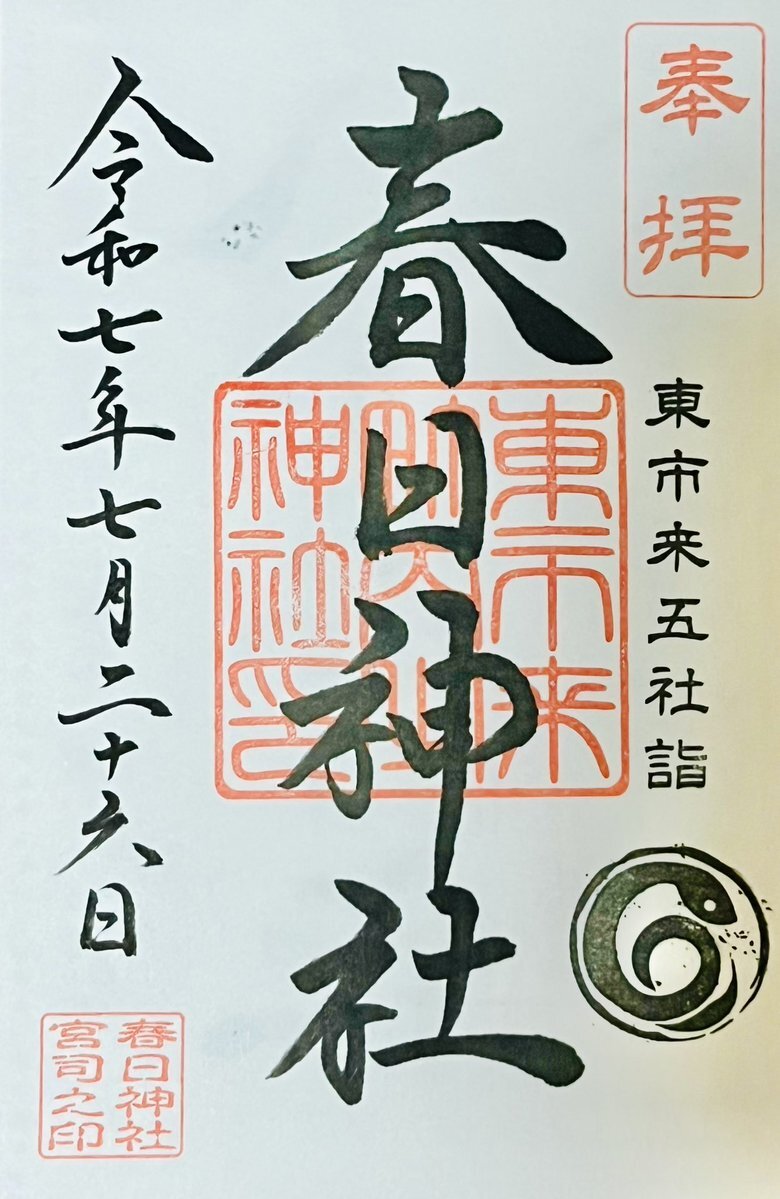 奉拝
東市来五社詣
春日神社
東市来
神社印
令和七年七月二十六日
春日神社
宮司之印